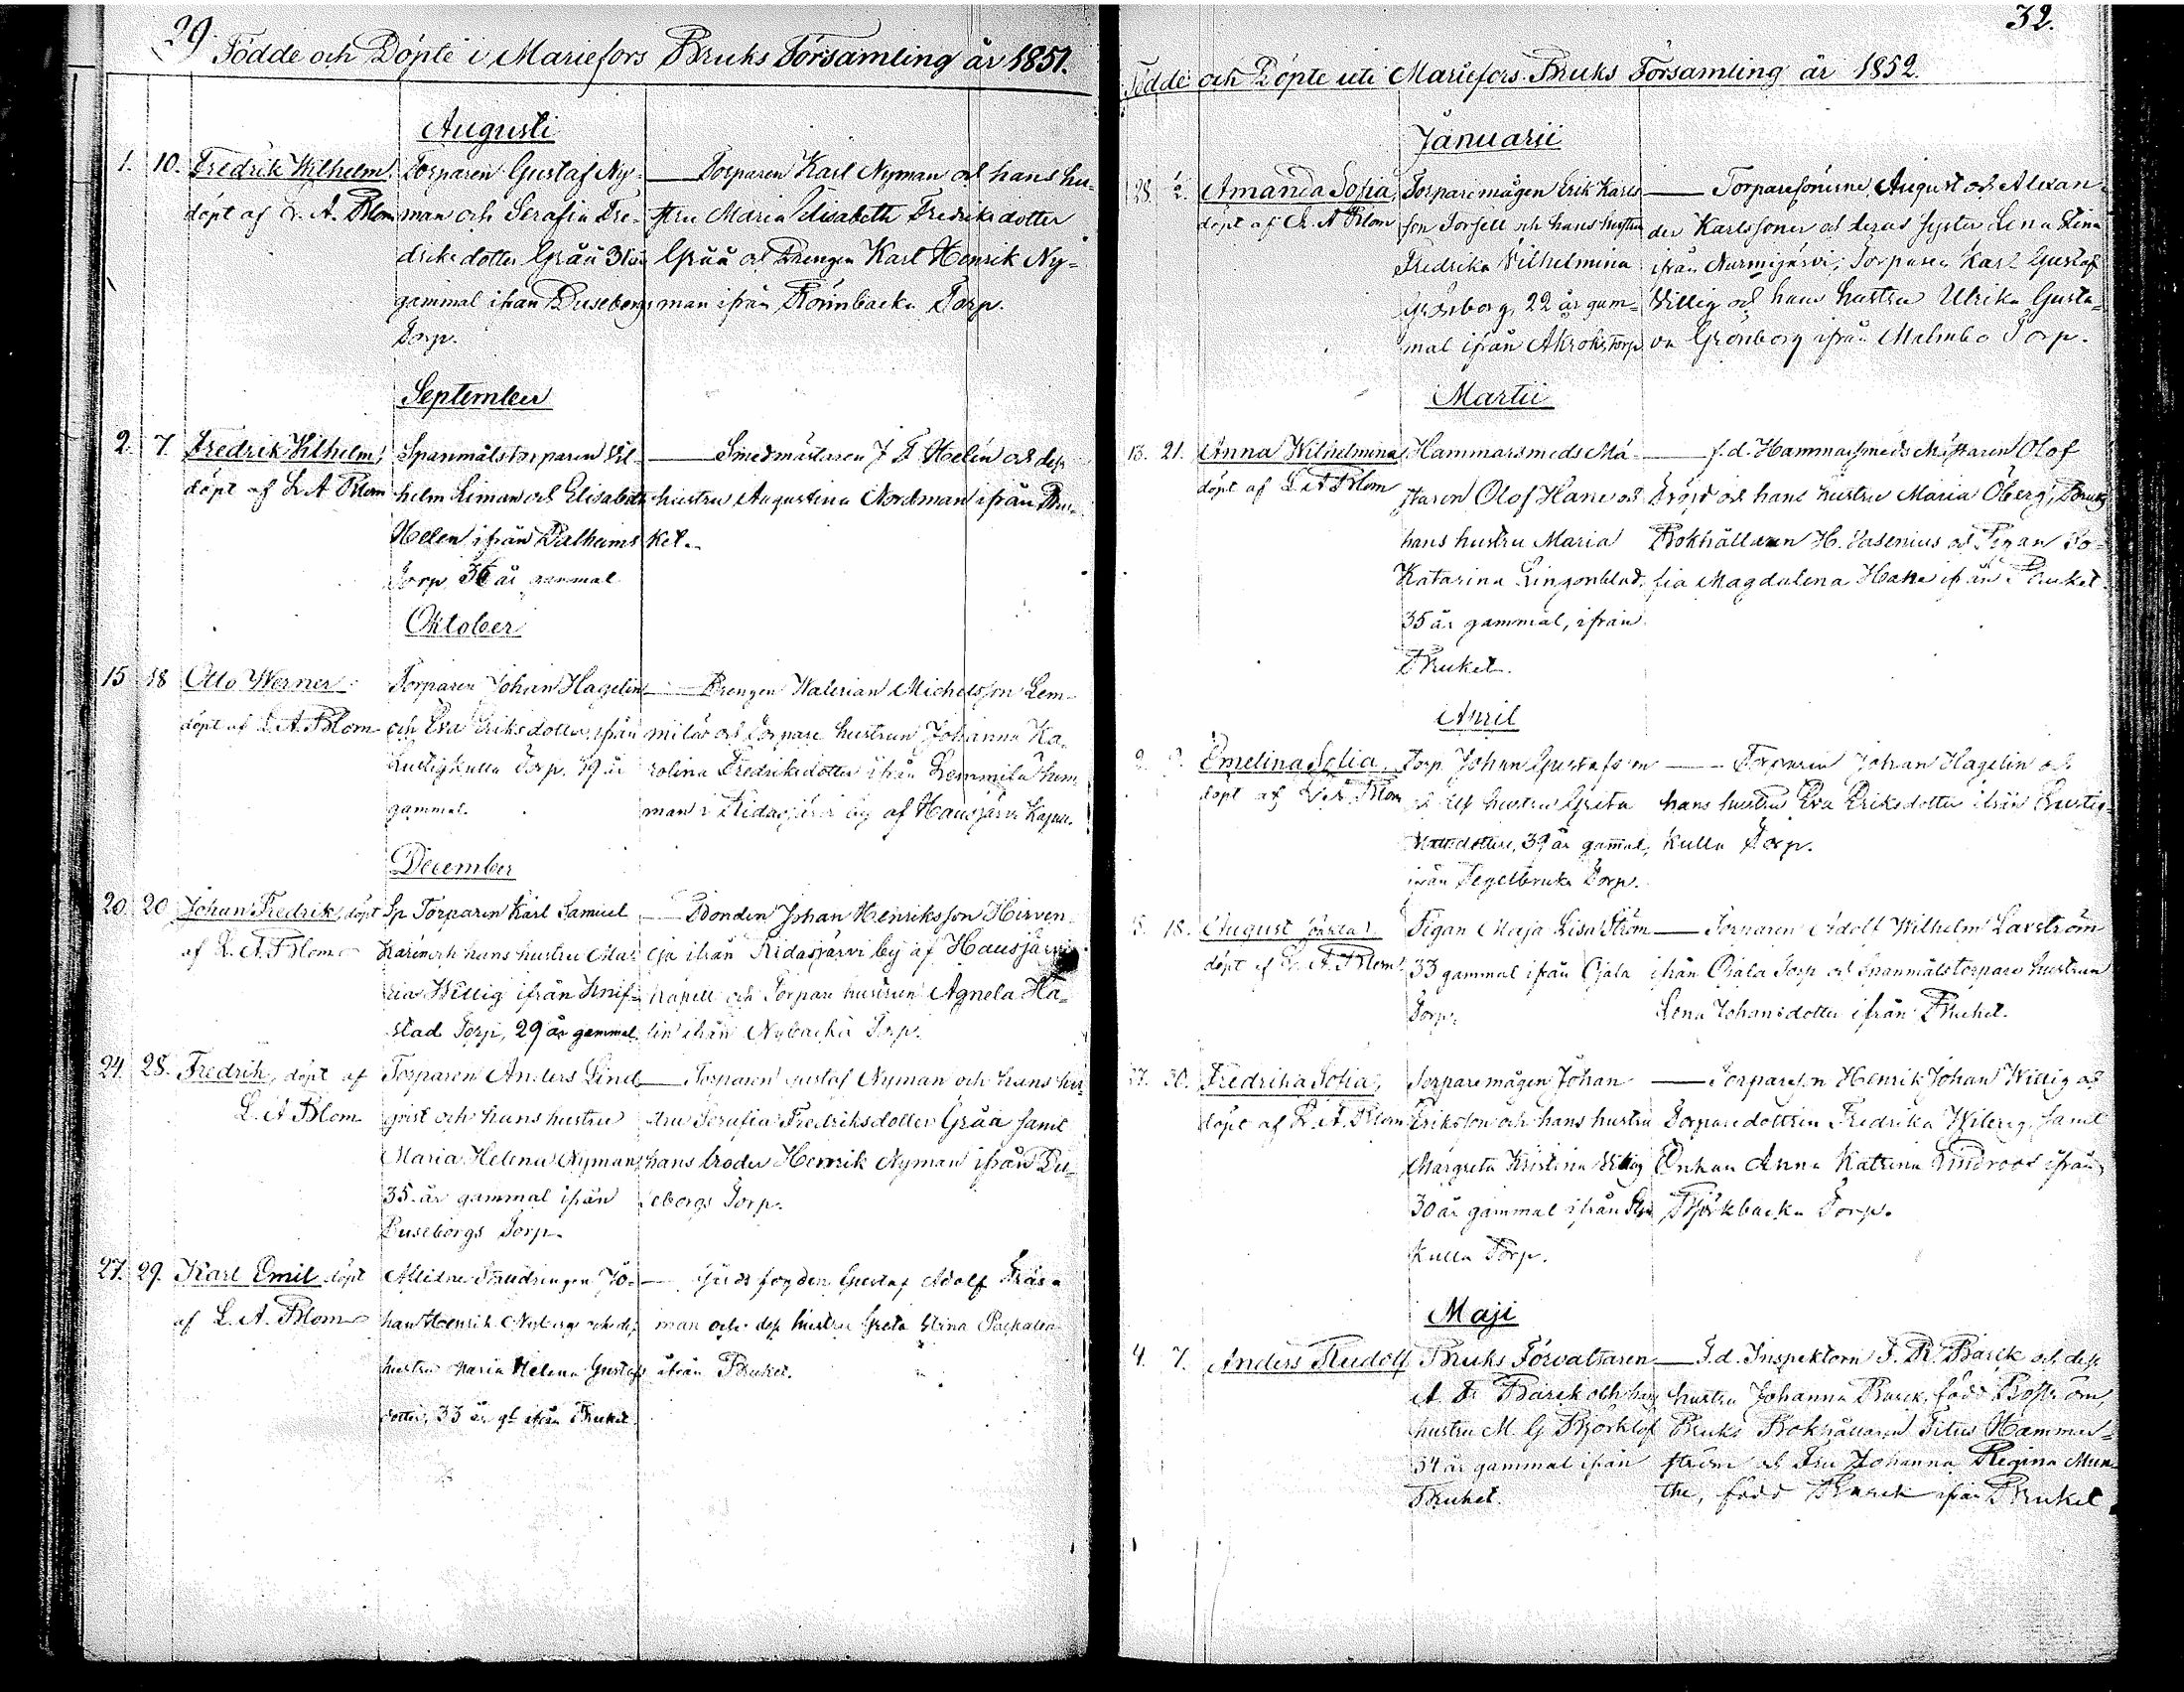 29.
Födde och Döpte i Mariefors Bruks Församling år 1851.
Augusti
1. 10. Fredrik Wilhelm, Torparen Gustaf Ny- — Torparen Karl Nyman och hans hu-
döpt af L. A. Blom man och Serafia Fre- stru Maria Elisabeth Fredriksdotter
driksdotter Gråå 31 år Gråå och Drengen Karl Henrik Ny-
gammal ifrån Buseborgs man ifrån Rönnbacka Torp.
Torp.
September
2. 7. Fredrik Wilhelm, Spanmålstorparen Vil- — Smedmästaren J F Helén och dess
döpt af L. A. Blom helm Liman och Elisabeth hustru Augustina Nordman ifrån Bru-
Helen ifrån Dalheims ket.
Torp 36 år gammal
Oktober
15 18 Otto Werner Torparen Johan Hagelin — Drengen Walerian Michelsson Lem-
döpt af L. A. Blom och Eva Eriksdotter, ifrån milä och Torpare hustrun Johanna Ka-
Lustigkulla Torp. 39 år rolina Fredriksdotter ifrån Lemmilä hem-
gammal. man i Ridasjärvi by af Hausjärvi Kapell.
December
20. 20 Johan Fredrik, döpt Sp Torparen Karl Samuel — Bonden Johan Henriksson Hirven-
af L. A. Blom och hans hustru Ma- oja ifrån Ridasjärvi by af Hausjärvi
ria Willig ifrån Knif- Kapell och Torpare hustrun Agneta Ha-
stad Torp, 29 år gammal. lin ifrån Nybacka Torp.
24. 28. Fredrik, döpt af Torparen Anders Lind- — Torparen Gustaf Nyman och hans hu-
L. A. Blom qvist och hans hustru stru Serafia Fredriksdotter Gråå samt
Maria Helena Nyman, hans broder Henrik Nyman ifrån Bu-
35 år gammal ifrån seborgs Torp.
Buseborgs Torp.
27. 29. Karl Emil döpt Jo- — Gustaf Adolf
af L. A. Blom han Henrik Nyberg och dess man och dess hustru Greta Stina
hustru Maria Helena Gustafs ifrån Bruket.
dotter, 33 år gl ifrån Bruket.
32.
Födde och Döpte uti Mariefors Bruks Församling år 1852.
Januarii
28. Amanda Sofia, Torparemågen Erik Karls- — Torparesönerne August och Alexan-
döpt af L. A. Blom son Forsell och hans hustru der Karlssoner och deras syster Lena Stina
Fredrika Vilhelmina ifrån Nurmijärvi, Torparen Karl Gustaf
Grönborg, 22 år gam- Willig och hans hustru Ulrika Gusta-
mal ifrån Torp va Grönborg ifrån Malmbo Torp.
Martii
13. 21. Anna Wilhelmina, Hammarsmeds Mä- — f.d. Hammarsmeds Mästaren Olof
döpt af L. A. Blom staren Olof Hane och Bröjs och hans hustru Maria Öberg, Bruks
hans hustru Maria Bokhållaren H. Vasenius och Pigan So-
Katarina Lingonblad, fia Magdalena Hane ifrån Bruket.
35 år gammal, ifrån
Bruket.
April
Emelina Sofia, Torp. Johan Gustafsson — Torparen Johan Hagelin och
döpt af L. A. Blom hustru Greta hans hustru Eva Eriksdotter ifrån Lustig-
dotter, 39 år gammal, kulla Torp.
ifrån Tegelbruks Torp.
18. August döpt af L. A. Blom. Pigan Maja Lisa Ström — Torparen Adolf Wilhelm Lavström
33 gammal ifrån Ojala ifrån Ojala Torp och Spanmålstorpare hustrun
Torp. Lena Johansdotter ifrån Bruket.
27. 30. Fredrika Sofia, Torparemågen Johan — Torpareson Henrik Johan Willig och
döpt af L. A. Blom Eriksson och hans hustru Torparedottren Fredrika Willig, samt
Margreta Kristina Willig Enkan Anna Katrina Lindroos ifrån
30 år gammal ifrån Björkbacka Torp.
kulla Torp.
Maji
4. 7. Anders Rudolf Bruks Förvaltaren — F.d. Inspektorn F. R. Barck och dess
A. F. Barck och hans hustru Johanna Barck, född Boström,
hustru M. G. Björklöf Bruks Bokhållaren Titus Hammar-
34 år gammal ifrån ström och Fru Johanna Regina Mun-
Bruket. the, född Barck ifrån Bruket